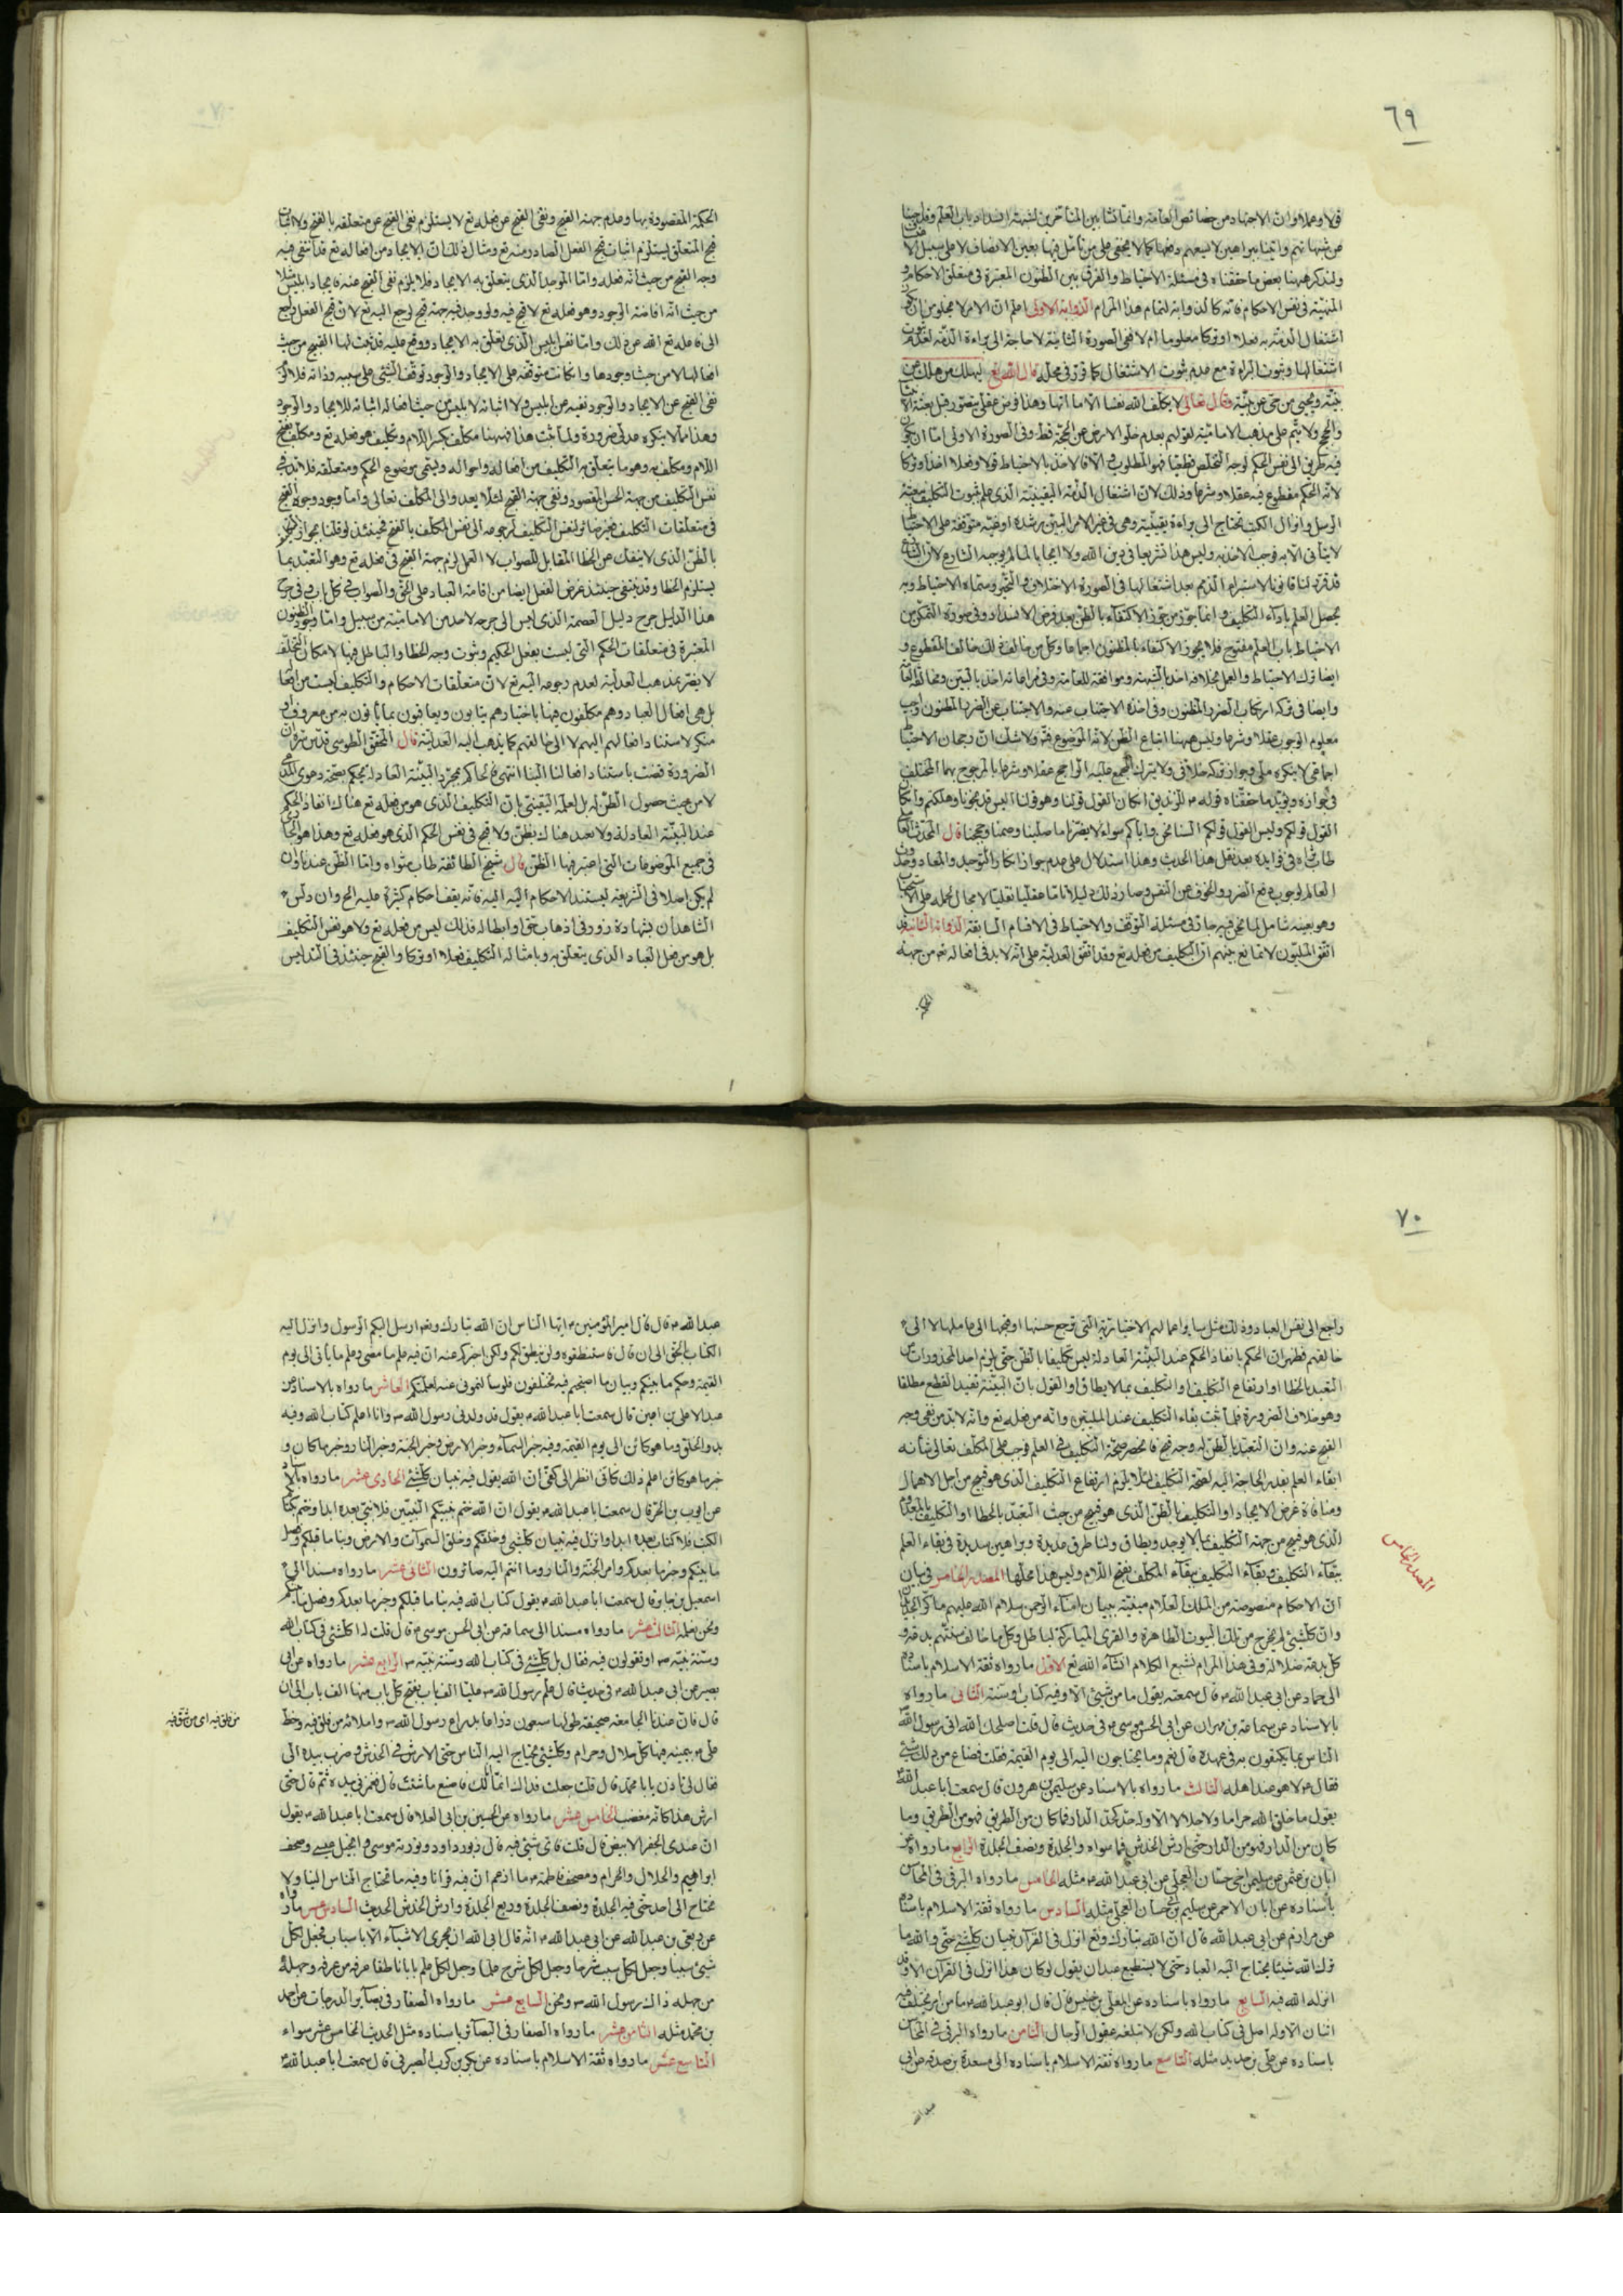 ٦٩
قولا وعملا وان الاجتهاد من خصائص العامة وانما نشا بين المتأخرين لشبهة انسداد باب العلم وقد اجبنا
عن شبهاتهم واتينا ببراهين لا يسعهم دفعها كما لا يخفى على من تأمل فيها بعين الانصاف لا على سبيل الاعتساف
ولنذكر ههنا بعض ما حققناه في مسئلة الاحتياط والفرق بين الظنون المعتبرة في متعلق الاحكام و
المنهية في نفس الاحكام فانه كالذوابة لتمام هذا المرام الذوابة الاولى اعلم ان الامر لا يخلو من ان يكون
اشتغال الذمة به فعلا او تركا معلوما ام لا ففي الصورة الثانية لا حاجة الى براءة الذمة لعدم ثبوت
اشتغالها وثبوت البراءة مع عدم ثبوت الاشتغال كما قرر في محله قال الله تع ليهلك من هلك عن
بينة ويحيى من حي عن بينة وقال تعالى لا يكلف الله نفسا الا ما اتاها وهذا فرض عقلي يتصور قبل بعثة الانبياء
والحجج ولا يتم على مذهب الامامية لقولهم بعدم خلو الارض عن الحجة قط وفي الصورة الاولى اما ان يكون
فيه طريق الى نفس الحكم لوجه التخلص قطعيا فهو المطلوب والا فالاخذ بالاحتياط قولا وفعلا اخذا وتركا
لانه الحكم مقطوع فيه عقلا وشرعا وذلك لان اشتغال الذمة اليقينية الذي علم ثبوت التكليف ببعثة
الرسل وانزال الكتب تحتاج الى براءة يقينية وهي في غير الامر البين رشده او غيه متوقفة على الاحتياط
لا يتأتى الا به فوجب الاخذ به وليس هذا تشريعا في دين الله ولا ايجابا لما لم يوجبه الشارع لان الشارع
قد قرر لنا قانونا لاستبراء الذمم بعد اشتغالها في الصورة الاختلاف والتحير وسماه الاحتياط وبه
يحصل العلم باداء التكليف و انما جوز من جوز الاكتفاء بالظن بعد فرض الانسداد وفي صورة التمكن من
الاحتياط باب العلم مفتوح فلا يجوز الاكتفاء بالمظنون اجماعا وكل من خالف ذلك خالف المقطوع و
ايضا ترك الاحتياط والعمل بخلافه اخذ بالشبهة وموافقة للعامة وفي مراعاته اخذ بالبين ومخالفة لها
وايضا في تركه ارتكاب الضرر المظنون وفي اخذه الاجتناب عنه والاجتناب عن الضرر المظنون واجب
معلوم الوجوب عقلا وشرعا وليس ههنا اتباع الظن لانه الموضوع فيه ولا شك ان رجحان الاحتياط
اجماعي لا ينكره ملي وجواز تركه خلافي ولا يترك المجمع عليه الراجح عقلا وشرعا بالمرجوح بهما المختلف
في جوازه ويؤيد ما حققناه قوله ع للزنديق ان كان القول قولنا وهو قولنا اليس قد نجونا وهلكتم وان كان
القول قولكم وليس القول قولكم السنا نحن واياكم سواء لا يضرنا ما صلينا وصمنا وحججنا قال المحدث العاملي
طاب ثراه في فوايده بعد نقل هذا الحديث وهذا استدلال على عدم جواز انكار التوحيد والمعاد وحدوث
العالم لوجوب دفع الضرر والخوف عن النفس وصار ذلك دليلا تاما عقليا نقليا لا مجال لحمله على الاستحباب
وهو بعينه شامل لما نحن فيه جار في مسئلة التوقف والاحتياط في الاقسام السابقة الذوابة الثانية قد
اتفق المليون لا تمانع بينهم ان التكليف من فعله تع وقد اتفق العدلية على انه لا بد في افعاله تع من جهة
الحكمة المقصودة بها وعدم جهة القبح ونفي القبح عن فعله تع لا يستلزم نفي القبح عن متعلقه بالفتح ولا اثبات
قبح المتعلق يستلزم اثبات قبح الفعل الصادر منه تع ومثال ذلك ان الايجاد من افعاله تع قد انتفى فيه
وجه القبح من حيث انه فعله واما الموجد الذي يتعلق به الايجاد فلا يلزم نفي القبح عنه فايجاد ابليس مثلا
من حيث انه افاضة الوجود وهو فعله تع لا قبح فيه ولو وجد فيه جهة قبح لرجع اليه تع لان قبح الفعل راجع
الى فاعله تع الله عن ذلك واما نفس ابليس الذي تعلق به الايجاد ووقع عليه قد ثبت لها القبح من حيث
افعالها لا من حيث وجودها وان كانت متوقفة على الايجاد والوجود توقف الشئ على سببه وذاته فلا لزوم
نفي القبح عن الايجاد والوجود نفيه عن ابليس ولا اثباته لابليس من حيث افعاله اثباته للايجاد والوجود
وهذا مما لا ينكره عدلي ضرورة ولما ثبت هذا فههنا مكلف بكسر اللام وتكليف هو فعله تع ومكلف بفتح
اللام ومكلف به وهو ما يتعلق به التكليف من افعاله واحواله ويسمى موضوع الحكم ومتعلقه فلا بد في
نفس التكليف من جهة الحسن المقصود ونفي جهة القبح لئلا يعد والى المكلف تعالى واما وجود وجوه القبح
في متعلقات التكليف فغير ضائر لنفس التكليف لرجوعه الى نفس المكلف بالفتح فحينئذ لو قلنا بجواز الحكم
بالظن الذي لا ينفك عن الخطا المقابل للصواب لا العمل لزم جهة القبح في فعله تع وهو التعبد بما
يستلزم الخطا وقد ينتفي حينئذ غرض الفعل ايضا من اقامة العباد على الحق والصواب في كل باب وفي جرح
هذا الدليل جرح دليل العصمة الذي ليس الى جرحه لاحد من الامامية من سبيل واما وجود الظنون
المعتبرة في متعلقات الحكم التي ليست بفعل الحكيم وثبوت وجه الخطا والباطل فيها لامكان التخلف
لا يضر بمذهب العدلية لعدم رجوعه اليه تع لان متعلقات الاحكام والتكليف ليست من افعاله
بل هي افعال العباد وهم مكلفون فيها باختيارهم يثابون ويعاقبون بما يأتون به من معروف او
منكر لاستناد افعالهم اليهم لا الى خالقهم كما يذهب اليه العدلية قال المحقق الطوسي قدس سره ان
الضرورة قضت باستناد افعالنا الينا انتهى فالحاكم بمجرد البينة العادلة يحكم بصحة دعوى المدعي
لا من حيث حصول الظن له بل لعلمه اليقيني بان التكليف الذي هو من فعله تع هناك انفاذ الحكم
عند البينة العادلة ولا تعبد هناك بظن ولا قبح في نفس الحكم الذي هو فعله تع وهذا هو الجاري
في جميع الموضوعات التي اعتبر فيها الظن قال شيخ الطائفة طاب مثواه واما الظن عندنا وان
لم يكن اصلا في الشريعة ليستند الاحكام اليه فانه يقف احكام كثيرة عليه الخ وان دلس
الشاهدان بشهادة زور في اذهاب حق او ابطاله فذلك ليس من فعله تع ولا هو نفس التكليف
بل هو من فعل العباد الذي يتعلق به وبامثاله التكليف فعلا او تركا والقبح حينئذ في التدليس
٧٠
راجع الى نفس العباد وذلك مثل سائر اعمالهم الاختيارية التي ترجع حسنها او قبحها الى عاملها لا الى
خالقهم فظهر ان الحكم بانفاذ الحكم عند البينة العادلة ليس تكليفا بالظن حتى يلزم احد المحذورات من
التعبد بالخطا او ارتفاع التكليف او التكليف بما لا يطاق او القول بان البينة تفيد القطع مطلقا
وهو خلاف الضرورة فلما ثبت بقاء التكليف عند المليين وانه من فعله تع وانه لا بد من نفي وجه
القبح عنه وان التعبد بالظن له وجه قبح فانحصر صحة التكليف في العلم فوجب على المكلف تعالى شأنه
ابقاء العلم بقدر الحاجة اليه لصحة التكليف لئلا يلزم ارتفاع التكليف الذي هو قبيح من اجل الاهمال
ومنافاة غرض الايجاد او التكليف بالظن الذي هو قبيح من حيث التعبد بالخطا او التكليف بالمعدوم
الذي هو قبيح من جهة التكليف بما لا يوجد ويطاق ولنا طرق عديدة وبراهين سديدة في بقاء العلم
ببقاء التكليف وبقاء التكليف ببقاء المكلف بفتح اللام وليس هذا محلها المصدر الخامس في بيان
ان الاحكام منصوصة من الملك العلام مبينة ببيان امناء الرحمن سلام الله عليهم ما كر الجديدان
وان كل شئ لم يخرج من تلك البيوت الطاهرة والقرى المباركة لباطل وكل ما خالف سنتهم بدعة و
كل بدعة ضلالة وفي هذا المرام نشبع الكلام انشاء الله تع الاول ما رواه ثقة الاسلام باسناده
الى حماد عن ابي عبد الله ع قال سمعته يقول ما من شئ الا وفيه كتاب او سنة الثاني ما رواه
بالاسناد عن سماعة بن مهران عن ابي الحسن موسى ع في حديث قال قلت اصلحك الله اتى رسول الله ص
الناس بما يكتفون به في عهده قال نعم وما يحتاجون اليه الى يوم القيمة فقلت فضاع من ذلك شئ
فقال ع لا هو عند اهله الثالث ما رواه بالاسناد عن سليمن بن هرون قال سمعت ابا عبد الله ع
يقول ما خلق الله حراما ولا حلالا الا وله حد كحد الدار فما كان من الطريق فهو من الطريق وما
كان من الدار فهو من الدار حتى ارش الخدش فما سواه والجلدة ونصف الجلدة الرابع ما رواه عن
ابان بن عثمن عن سليمن اخي حسان العجلي عن ابي عبد الله ع مثله الخامس ما رواه البرقي في المحاسن
باسناده عن ابان الاحمر عن سليم بن حسان العجلي مثله السادس ما رواه ثقة الاسلام باسناده
عن مرازم عن ابي عبد الله قال ان الله تبارك وتع انزل في القرآن تبيان كل شئ حتى والله ما
ترك الله شيئا يحتاج اليه العباد حتى لا يستطيع عبد ان يقول لو كان هذا انزل في القرآن الا وقد
انزله الله فيه السابع ما رواه باسناده عن المعلى بن خنيس قال قال ابو عبد الله ع ما من امر يختلف فيه
اثنان الا وله اصل في كتاب الله ولكن لا تبلغه عقول الرجال الثامن ما رواه البرقي في المحاسن
باسناده عن علي بن حديد مثله التاسع ما رواه ثقة الاسلام باسناده الى مسعدة بن صدقة عن ابي
المصدر الخامس
عبد الله ع قال قال امير المؤمنين ع ايها الناس ان الله تبارك وتع ارسل اليكم الرسول وانزل اليه
الكتاب بالحق الى ان قال فاستنطقوه ولن ينطق لكم ولكن اخبركم عنه ان فيه علم ما مضى وعلم ما يأتي الى يوم
القيمة وحكم ما بينكم وبيان ما اصبحتم فيه تختلفون فلو سألتموني عنه لعلمتكم العاشر ما رواه بالاسناد عن
عبد الاعلى بن اعين قال سمعت ابا عبد الله ع يقول قد ولدني رسول الله ص وانا اعلم كتاب الله وفيه
بدو الخلق وما هو كائن الى يوم القيمة وفيه خبر السماء وخبر الارض وخبر الجنة وخبر النار وخبر ما كان و
خبر ما هو كائن اعلم ذلك كانى انظر الى كفى ان الله يقول فيه تبيان كل شئ الحادي عشر ما رواه بالاسناد
عن ايوب بن الحر قال سمعت ابا عبد الله ع يقول ان الله ختم بنبيكم النبيين فلا نبي بعده ابدا وختم بكتابكم
الكتب فلا كتاب بعده ابدا وانزل فيه تبيان كل شئ وخلقكم وخلق السموات والارض ونبأ ما قبلكم وفصل
ما بينكم وخبر ما بعدكم وامر الجنة والنار وما انتم اليه صائرون الثاني عشر ما رواه مسندا الى
اسمعيل بن جابر قال سمعت ابا عبد الله ع يقول كتاب الله فيه نبا ما قبلكم وخبر ما بعدكم وفصل ما بينكم
ونحن نعلمه الثالث عشر ما رواه مسندا الى سماعة عن ابي الحسن موسى ع قال قلت له اكل شئ في كتاب الله
وسنة نبيه ص او تقولون فيه فقال بل كل شئ في كتاب الله وسنة نبيه ص الرابع عشر ما رواه عن ابي
بصير عن ابي عبد الله ع في حديث قال علم رسول الله ص عليا الف باب يفتح كل باب منها الف باب الى ان
قال فان عندنا الجامعة صحيفة طولها سبعون ذراعا بذراع رسول الله ص واملائه من فلق فيه وخط
علي ع بيمينه فيها كل حلال وحرام وكل شئ يحتاج اليه الناس حتى الارش في الخدش وضرب بيده الى
فقال لي تأذن يا با محمد قال قلت جعلت فداك انما انا لك فاصنع ما شئت قال فغمزني بيده ثم قال حتى
ارش هذا كانه مغضب الخامس عشر ما رواه عن الحسين بن ابي العلا قال سمعت ابا عبد الله ع يقول
ان عندي الجفر الابيض قال قلت فاي شئ فيه قال زبور داود وتورية موسى وانجيل عيسى وصحف
ابراهيم والحلال والحرام ومصحف فاطمة ع ما ازعم ان فيه قرآنا وفيه ما تحتاج الناس الينا ولا
نحتاج الى احد حتى فيه الجلدة ونصف الجلدة وربع الجلدة وارش الخدش الحديث السادس عشر ما رواه
عن ربعي بن عبد الله عن ابي عبد الله ع انه قال ابى الله ان يجري الاشياء الا باسباب فجعل لكل
شئ سببا وجعل لكل سبب شرحا وجعل لكل شرح علما وجعل لكل علم بابا ناطقا عرفه من عرفه وجهله
من جهله ذاك رسول الله ص ونحن السابع عشر ما رواه الصفار في بصاير الدرجات عن احمد
بن محمد مثله الثامن عشر ما رواه الصفار في البصائر باسناده مثل الحديث الخامس عشر سواء
التاسع عشر ما رواه ثقة الاسلام باسناده عن بكر بن كرب الصيرفي قال سمعت ابا عبد الله ع
من فلق فيه اى من شق فيه